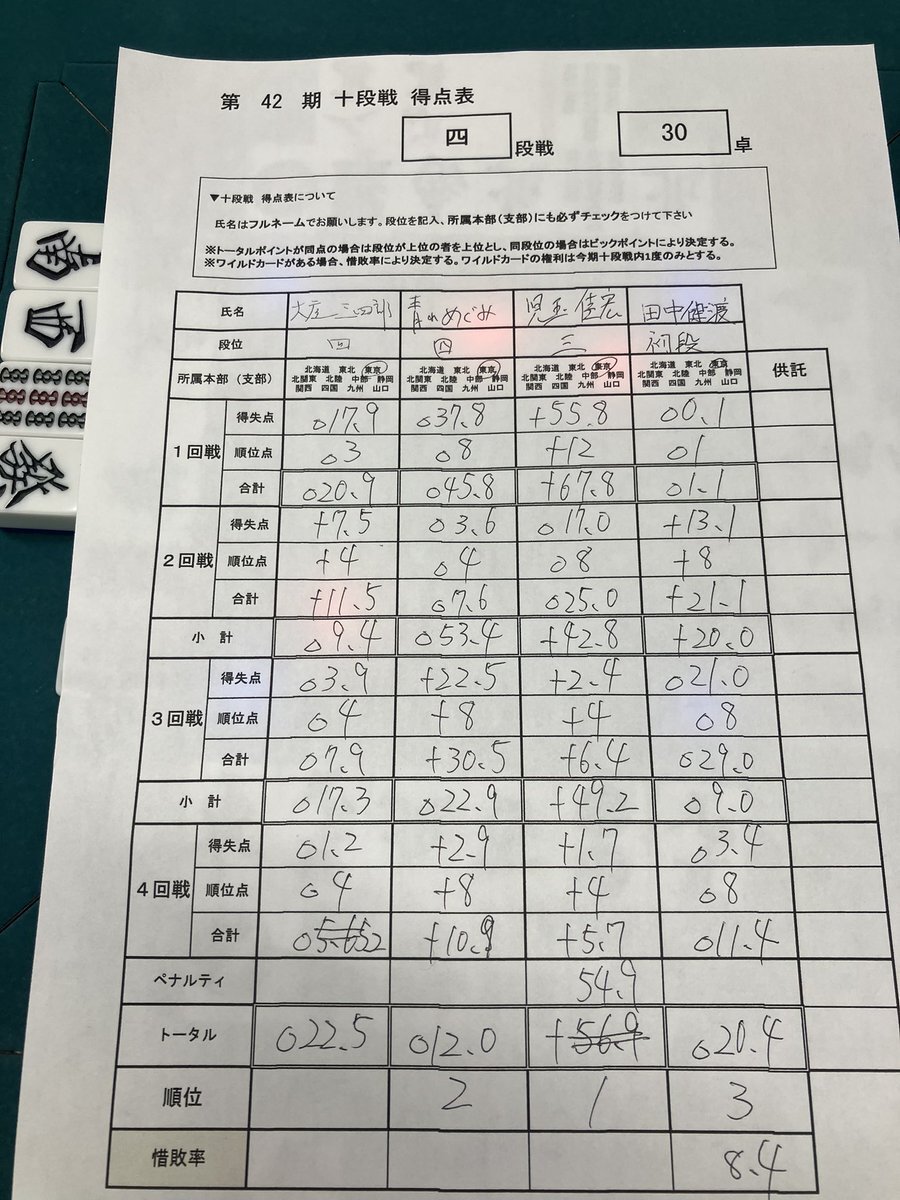 第 42 期 十段戦 得点表
四 段戦 30 卓
▼十段戦 得点表について
氏名はフルネームでお願いします。段位を記入、所属本部(支部)にも必ずチェックをつけて下さい
※トータルポイントが同点の場合は段位が上位の者を上位とし、同段位の場合はビックポイントにより決定する。
※ワイルドカードがある場合、惜敗率により決定する。ワイルドカードの権利は今期十段戦内1度のみとする。
氏名 三四郎 青山めぐみ 児玉佳宏 田中保渡
段位 四 四 三 初段
所属本部(支部) 北海道 東北 東京 北海道 東北 東京 北海道 東北 東京 北海道 東北 東京 供託
北関東 北陸 中部 静岡 北関東 北陸 中部 静岡 北関東 北陸 中部 静岡 北関東 北陸 中部 静岡
関西 四国 九州 山口 関西 四国 九州 山口 関西 四国 九州 山口 関西 四国 九州 山口
1回戦
得失点 o17.9 o37.8 +55.8 o0.1
順位点 o3 o8 +12 o1
合計 o20.9 o45.8 +67.8 o1.1
2回戦
得失点 +7.5 o3.6 o17.0 +13.1
順位点 +4 o4 o8 +8
合計 +11.5 o7.6 o25.0 +21.1
小 計 o9.4 o53.4 +42.8 +20.0
3回戦
得失点 o3.9 +22.5 +2.4 o21.0
順位点 o4 +8 +4 o8
合計 o7.9 +30.5 +6.4 o29.0
小 計 o17.3 o22.9 +49.2 o9.0
4回戦
得失点 o1.2 +2.9 +1.7 o3.4
順位点 o4 +8 +4 o8
合計 +10.9 +5.7 o11.4
ペナルティ 54.9
トータル o22.5 o12.0 o20.4
順位 2 1 3
惜敗率 8.4
萬
西
發